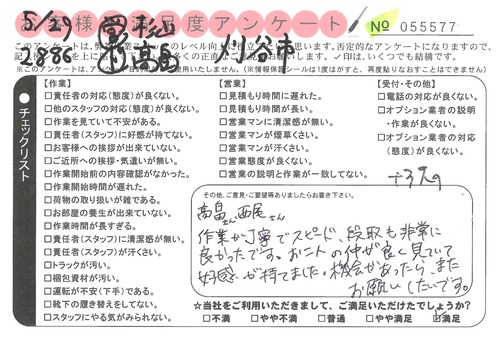 5/29 営 杉山 刈谷市
2886 作 高畠
お客様満足度アンケート No 055577
【作業】
□責任者の対応(態度)が良くない。
□他のスタッフの対応(態度)が良くない。
□作業を見ていて不安がある。
□責任者(スタッフ)に好感が持てない。
□お客様への挨拶が出来ていない。
□ご近所への挨拶・気遣いが無い。
□作業開始前の内容確認がなかった。
□作業開始時間が遅れた。
□荷物の取り扱いが雑である。
□お部屋の養生が出来ていない。
□作業時間が長すぎる。
□責任者(スタッフ)に清潔感が無い。
□責任者(スタッフ)が汗くさい。
□トラックが汚い。
□梱包資材が汚い。
□運転が不安(下手)である。
□靴下の履き替えをしてない。
□スタッフにやる気がみられない。
チェックリスト
【営業】
□見積もり時間に遅れた。
□見積もり時間が長い。
□営業マンに清潔感が無い。
□営業マンが煙草くさい。
□営業マンが汗くさい。
□営業態度が良くない。
□営業の説明と作業が一致してない。
【受付・その他】
□電話の対応が良くない。
□オプション業者の説明
・作業が良くない。
□オプション業者の対応
(態度)が良くない。
その他、ご意見・ご要望等ありましたらお書き下さい。
高畠さん 西尾さん
作業が丁寧でスピード、段取も非常に
良かったです。お二人の仲が良く見ていて
好感が持てました。機会があったら、また
お願いしたいです。
☆当社をご利用いただきまして、ご満足いただけたでしょうか?
□不満 □やや不満 □普通 □やや満足 ☑満足